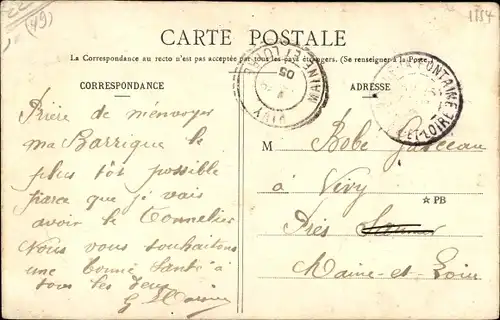 (49)
1154
CARTE POSTALE
La Correspondance au recto n'est pas acceptée par tous les pays étrangers. (Se renseigner à la Poste.)
CORRESPONDANCE
ADRESSE
Prière de m'envoyer
ma Barrique le
plus tôt possible
parce que je vais
avoir le Tonnelier
Nous vous souhaitons
une bonne Santé à
tous les deux
MAINE ET LOIRE
05
VIVY
FONTAINE
ET-LOIRE
M Bobe
à Vivy
☆ PB
Près Saumur
Maine-et-Loire